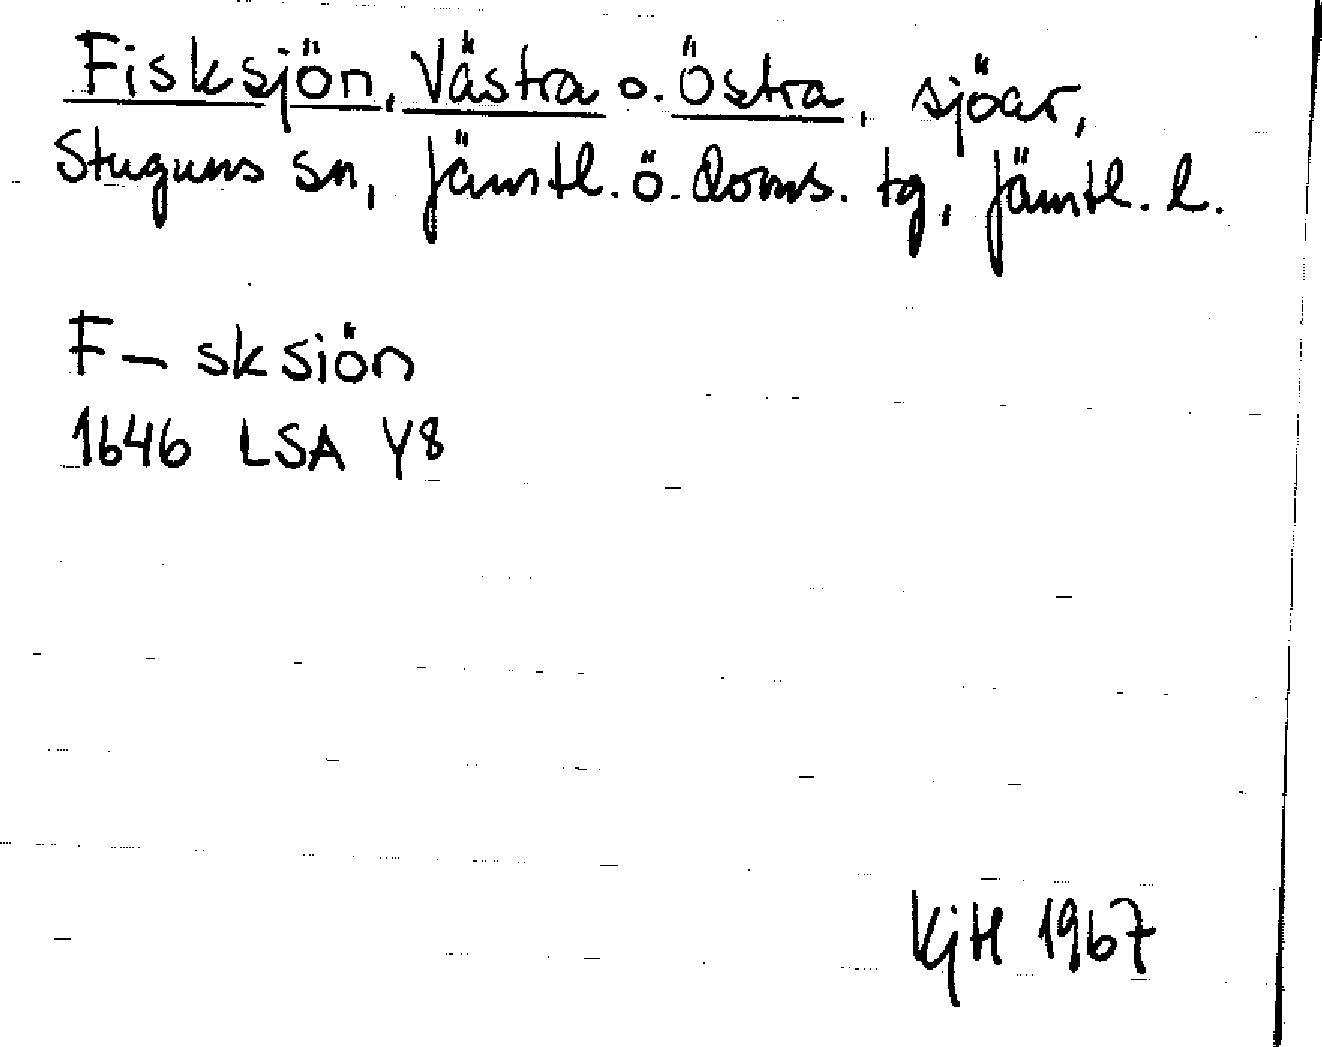 Fisksjön, Västra o. Östra, sjöar,
Stuguns sn, Jämtl. ö. doms. tg, Jämtl. l.
F– sksiön
1646 LSA Y8
KjH 1967